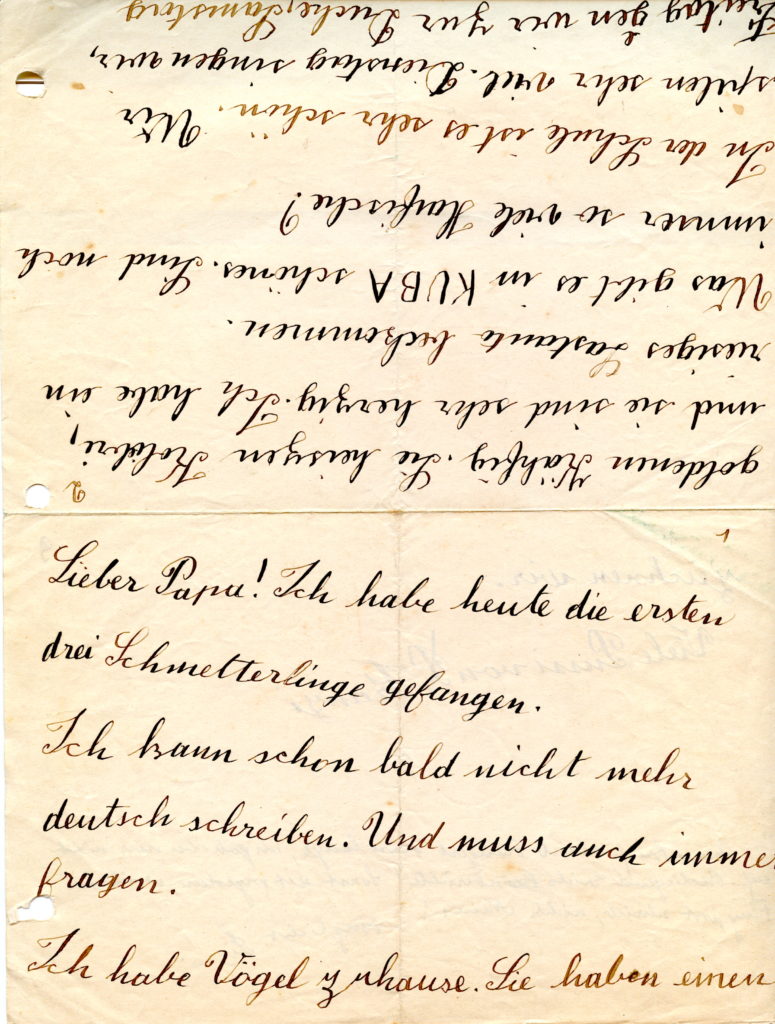 1
Lieber Papa! Ich habe heute die ersten
drei Schmetterlinge gefangen.
Ich kann schon bald nicht mehr
deutsch schreiben. Und muss auch immer
fragen.
Ich habe Vögel zuhause. Sie haben einen
2
goldenin Kähfig. Sie heissen Kolibri,
und sie sind sehr herzig. Ich habe ein
riesiges Lastauto bekommen.
Was gibt es in KUBA schönes. Sind noch
immer so viele Haifische?
In der Schule ist es sehr schön. Wir
spilen sehr viel. Dienstag singen wir,
Freitag gen wir zur Duche, Samstag
zeichnen wir.
Viele Bussi von